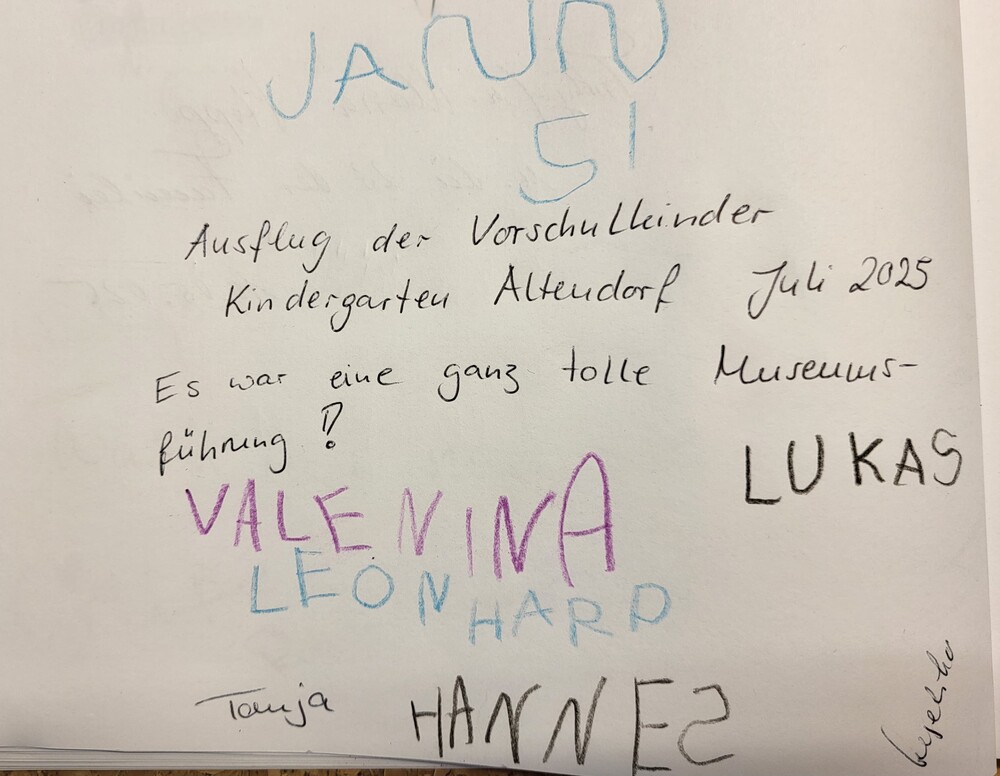 JANN
SI
Ausflug der Vorschulkinder
Kindergarten Altendorf Juli 2025
Es war eine ganz tolle Museums-
führung!
LUKAS
VALENINA
LEONHARD
Tanja
HANNES